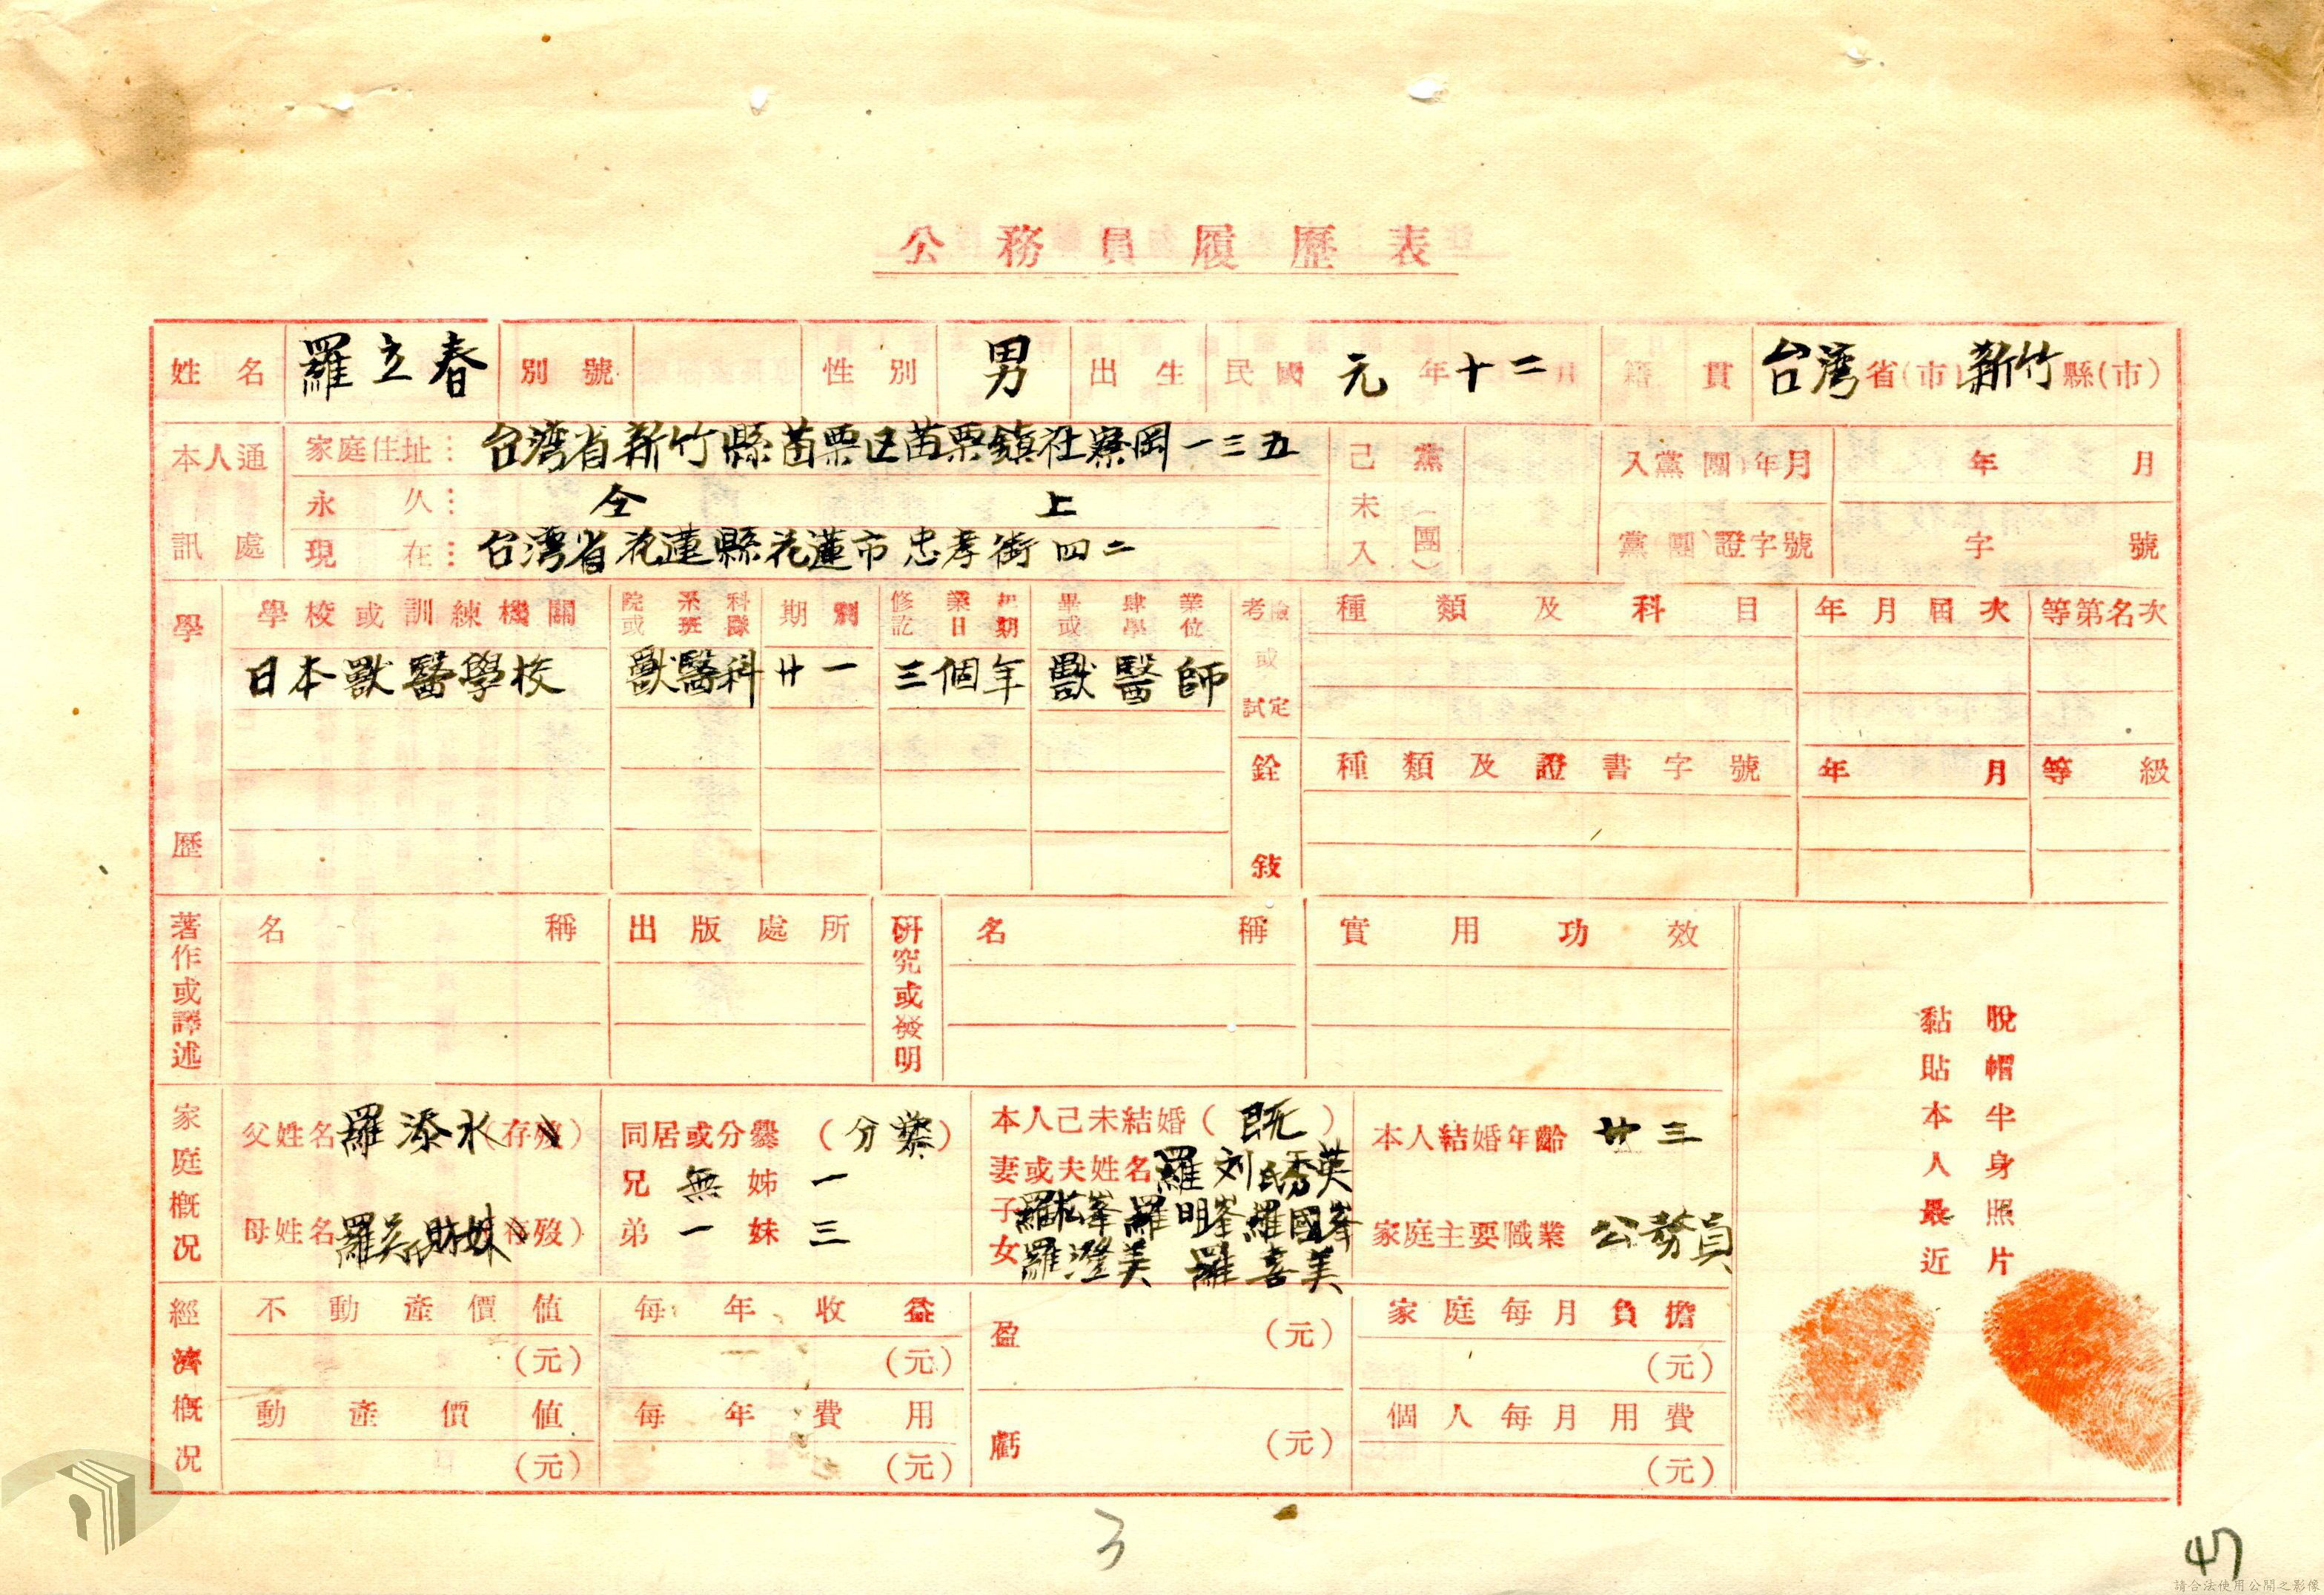 公務員履歷表
姓名 羅立春 別號 性別 男 出生 民國 元 年 十二 月 籍貫 台湾 省(市) 新竹 縣(市)
本人通訊處 家庭住址：台湾省新竹縣苗栗区苗栗鎮社寮岡一三五
永久：仝上
現在：台湾省花蓮縣花蓮市忠孝街四二
己未入黨(團) 入黨(團)年月 年 月
黨(團)證字號 字 號
學歷 學校或訓練機關 院系科或班隊 期別 修業起訖日期 畢肄業或學位
日本獸醫學校 獸醫科 廿一 三個年 獸醫師
考試或檢定 種類及科目 年月屆次 等第名次
銓敍 種類及證書字號 年月 等級
著作或譯述 名稱 出版處所
研究或發明 名稱 實用功效
家庭概況 父姓名 羅添水 (存歿)
母姓名 羅吳氏財妹 (存歿)
同居或分爨 (分爨)
兄 無 姊 一
弟 一 妹 三
本人己未結婚 (既)
妻或夫姓名 羅刘氏秀英
子 羅松峯 羅明峯 羅國峯
女 羅澄美 羅喜美
本人結婚年齡 廿三
家庭主要職業 公務員
經濟概況 不動產價值 (元)
動產價值 (元)
每年收益 (元)
每年費用 (元)
盈 (元)
虧 (元)
家庭每月負擔 (元)
個人每月用費 (元)
脫帽半身照片
黏貼本人最近
3
47
請合法使用公開之影像